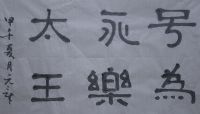 号為
永樂
太王
甲午夏月元